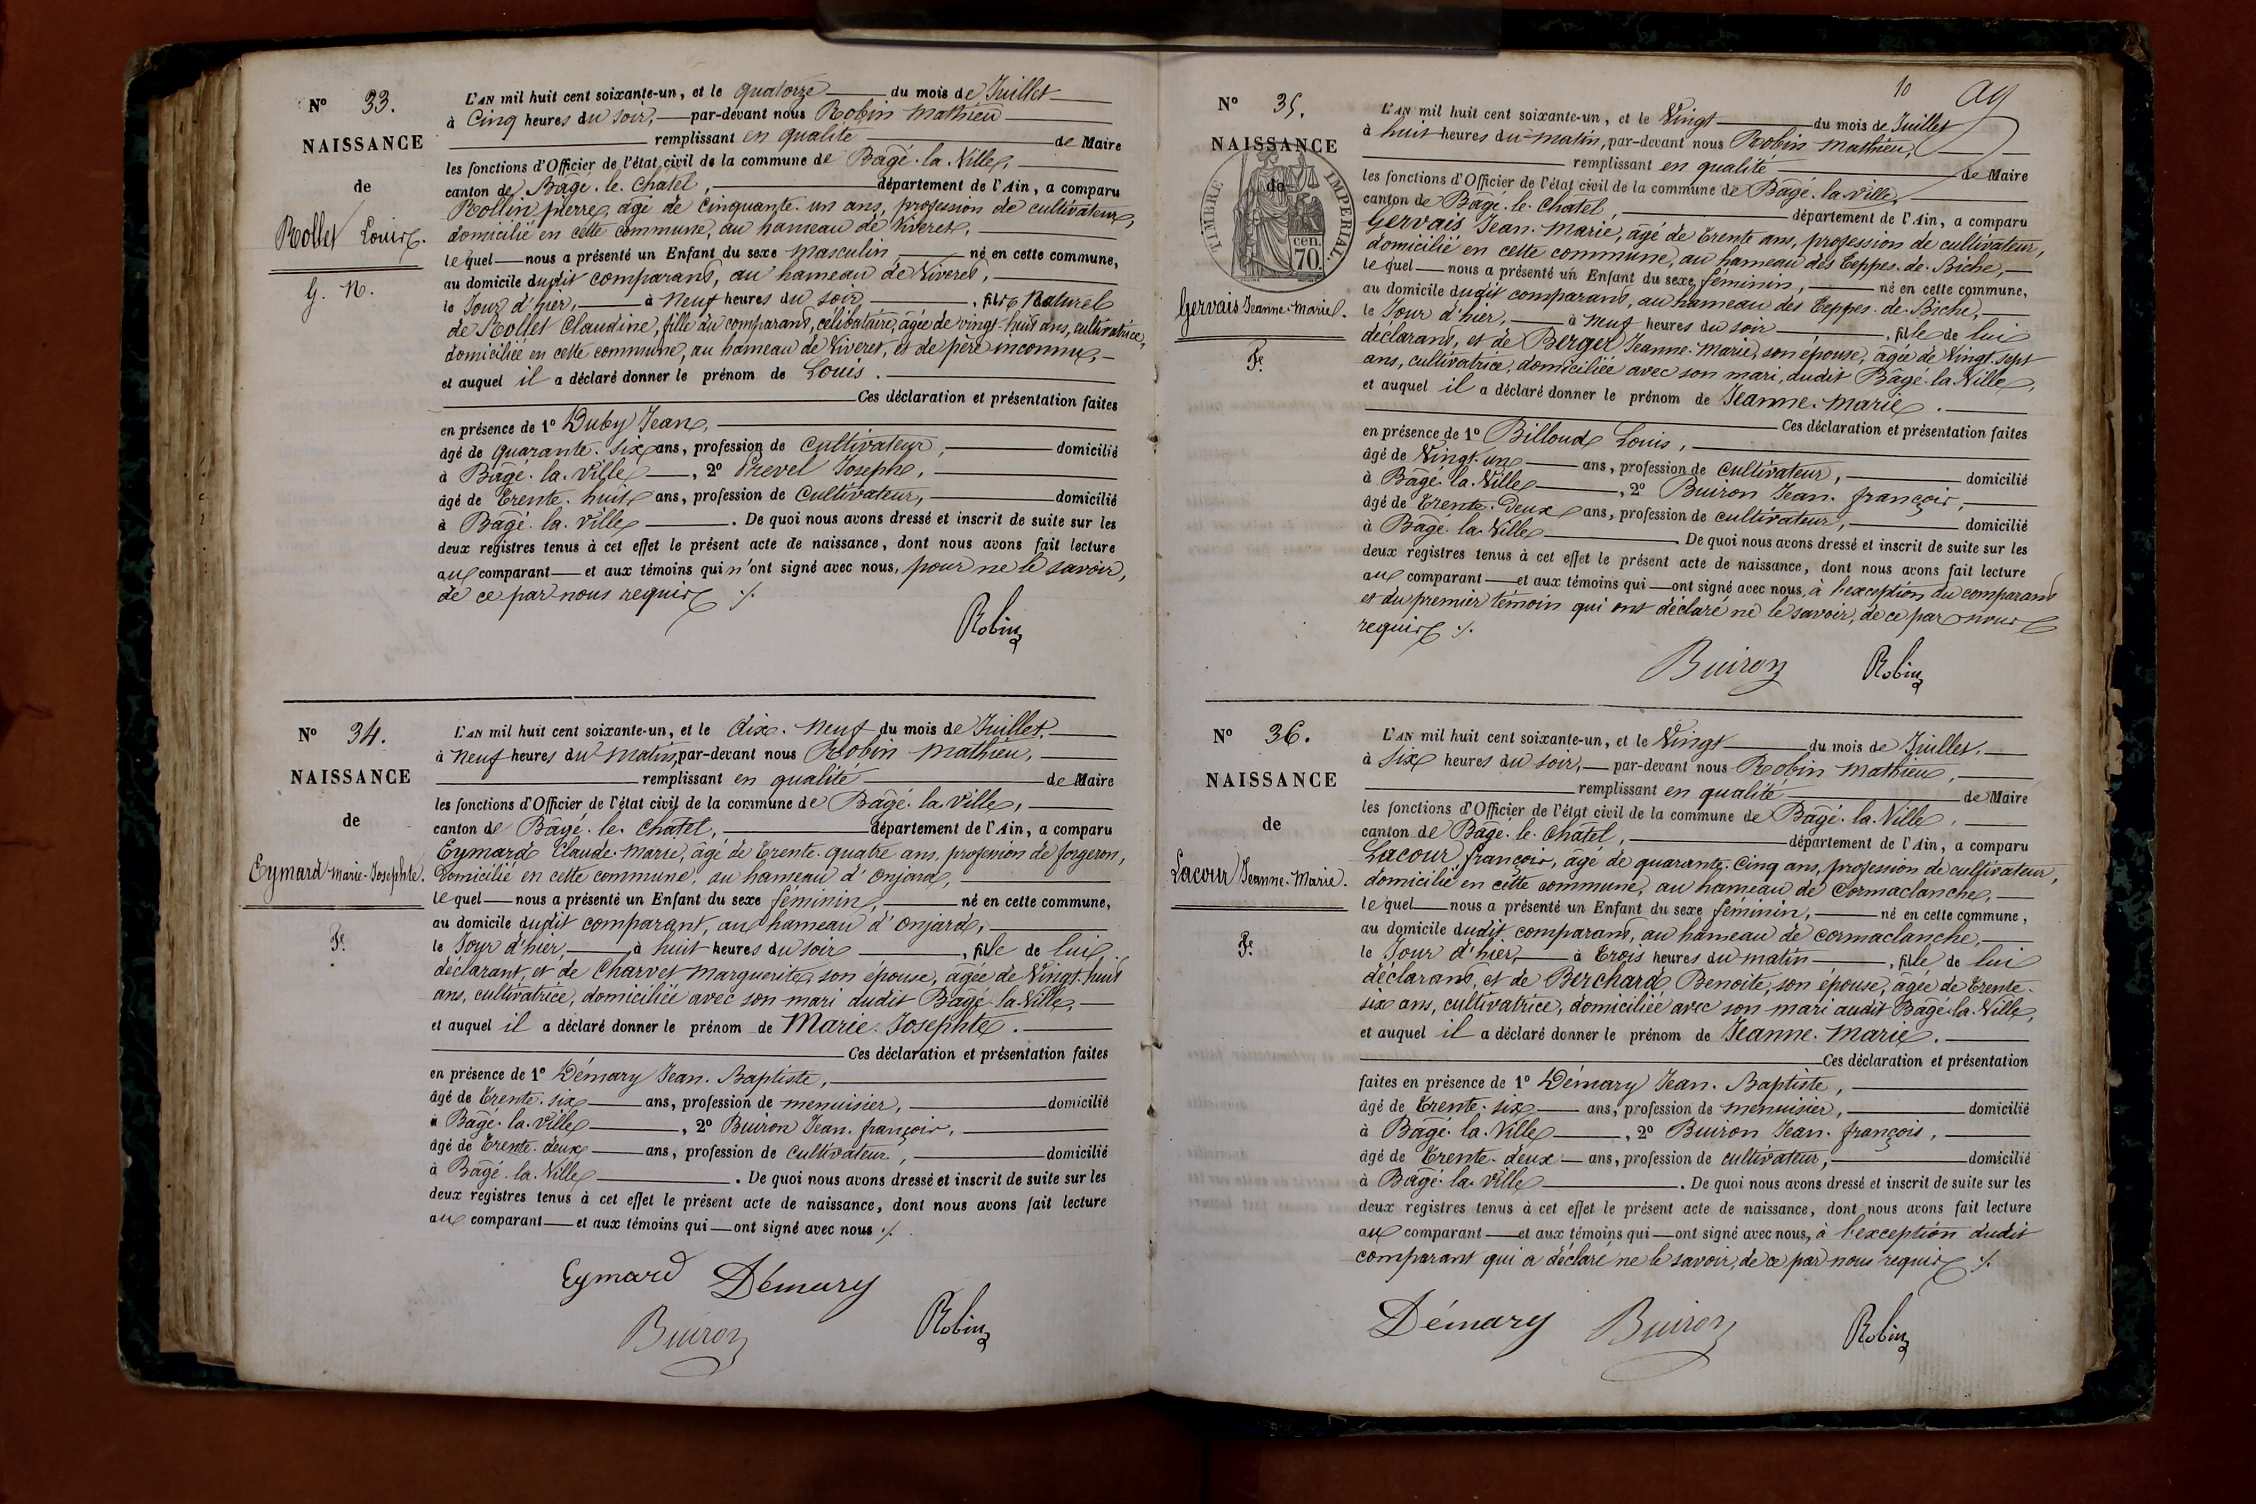 Nº 33.
NAISSANCE
de
Rollet Louis.
G. N.
L'AN mil huit cent soixante-un, et le quatorze du mois de Juillet
à Cinq heures du soir, par-devant nous Robin Mathieu
remplissant en qualité de Maire
les fonctions d'Officier de l'état civil de la commune de Bâgé-la-Ville,
canton de Bâgé-le-Chatel, département de l'Ain, a comparu
Rollin pierre, âgé de Cinquante-un ans, profession de cultivateur,
domicilié en cette commune, au hameau de Viveret,
lequel nous a présenté un Enfant du sexe masculin, né en cette commune,
au domicile dudit comparant, au hameau de Viveret,
le Jour d'hier, à Neuf heures du soir, fils Naturel
de Rollet Claudine, fille du comparant, célibataire, âgée de vingt-huit ans, cultivatrice,
domiciliée en cette commune, au hameau de Viveret, et de père inconnu,
et auquel il a déclaré donner le prénom de Louis.
Ces déclaration et présentation faites
en présence de 1º Duby Jean,
âgé de quarante-six ans, profession de Cultivateur, domicilié
à Bâgé-la-Ville, 2º Prevel Joseph,
âgé de Trente-huit ans, profession de Cultivateur, domicilié
à Bâgé-la-Ville. De quoi nous avons dressé et inscrit de suite sur les
deux registres tenus à cet effet le présent acte de naissance, dont nous avons fait lecture
au comparant et aux témoins qui n'ont signé avec nous, pour ne le savoir,
de ce par nous requis ./.
Robin
Nº 34.
NAISSANCE
de
Eymard Marie-Josephte.
Fe.
L'AN mil huit cent soixante-un, et le dix-neuf du mois de Juillet
à Neuf heures du matin, par-devant nous Robin Mathieu,
remplissant en qualité de Maire
les fonctions d'Officier de l'état civil de la commune de Bâgé-la-Ville,
canton de Bâgé-le-Chatel, département de l'Ain, a comparu
Eymard Claude-Marie, âgé de Trente-quatre ans, profession de forgeron,
Domicilié en cette commune, au hameau d'onjard,
lequel nous a présenté un Enfant du sexe féminin, né en cette commune,
au domicile dudit comparant, au hameau d'onjard,
le Jour d'hier, à huit heures du soir, fille de lui
déclarant, et de Charvet Marguerite, son épouse, âgée de Vingt-huit
ans, cultivatrice, domiciliée avec son mari dudit Bâgé-la-Ville,
et auquel il a déclaré donner le prénom de Marie-Josephte.
Ces déclaration et présentation faites
en présence de 1º Démary Jean-Baptiste,
âgé de Trente-six ans, profession de menuisier, domicilié
à Bâgé-la-Ville, 2º Buiron Jean-françois,
âgé de Trente-deux ans, profession de cultivateur, domicilié
à Bâgé-la-Ville. De quoi nous avons dressé et inscrit de suite sur les
deux registres tenus à cet effet le présent acte de naissance, dont nous avons fait lecture
au comparant et aux témoins qui ont signé avec nous ./.
Eymard Démary
Buiron Robin
10
Nº 35.
NAISSANCE
de
TIMBRE IMPERIAL.
cen.
70.
Gervais Jeanne-Marie.
Fe.
L'AN mil huit cent soixante-un, et le Vingt du mois de Juillet
à huit heures du matin, par-devant nous Robin Mathieu,
remplissant en qualité de Maire
les fonctions d'Officier de l'état civil de la commune de Bâgé-la-Ville,
canton de Bâgé-le-Chatel, département de l'Ain, a comparu
Gervais Jean-Marie, âgé de Trente ans, profession de cultivateur,
domicilié en cette commune, au hameau des Teppes-de-Biche,
lequel nous a présenté un Enfant du sexe féminin, né en cette commune,
au domicile dudit comparant, au hameau des Teppes-de-Biche,
le Jour d'hier, à neuf heures du soir, fille de lui
déclarant, et de Berger Jeanne-Marie, son épouse, âgée de Vingt-sept
ans, cultivatrice, domiciliée avec son mari, dudit Bâgé-la-Ville,
et auquel il a déclaré donner le prénom de Jeanne-Marie.
Ces déclaration et présentation faites
en présence de 1º Billoud Louis,
âgé de Vingt-un ans, profession de cultivateur, domicilié
à Bâgé-la-Ville, 2º Buiron Jean-françois,
âgé de Trente-Deux ans, profession de cultivateur, domicilié
à Bâgé-la-Ville. De quoi nous avons dressé et inscrit de suite sur les
deux registres tenus à cet effet le présent acte de naissance, dont nous avons fait lecture
au comparant et aux témoins qui ont signé avec nous, à l'exception du comparant
et du premier témoin qui ont déclaré ne le savoir, de ce par nous
requis ./.
Buiron Robin
Nº 36.
NAISSANCE
de
Lacour Jeanne-Marie.
Fe.
L'AN mil huit cent soixante-un, et le Vingt du mois de Juillet,
à six heures du soir, par-devant nous Robin Mathieu,
remplissant en qualité de Maire
les fonctions d'Officier de l'état civil de la commune de Bâgé-la-Ville,
canton de Bâgé-le-Chatel, département de l'Ain, a comparu
Lacour françois, âgé de quarante-Cinq ans, profession de cultivateur,
domicilié en cette commune, au hameau de Cormaclanche,
lequel nous a présenté un Enfant du sexe féminin, né en cette commune,
au domicile dudit comparant, au hameau de cormaclanche,
le Jour d'hier, à Trois heures du matin, fille de lui
déclarant, et de Berchard Benoite, son épouse, âgée de Trente-
six ans, cultivatrice, domiciliée avec son mari audit Bâgé-la-Ville,
et auquel il a déclaré donner le prénom de Jeanne-Marie.
Ces déclaration et présentation
faites en présence de 1º Démary Jean-Baptiste,
âgé de Trente-six ans, profession de menuisier, domicilié
à Bâgé-la-Ville, 2º Buiron Jean-françois,
âgé de Trente-deux ans, profession de cultivateur, domicilié
à Bâgé-la-Ville. De quoi nous avons dressé et inscrit de suite sur les
deux registres tenus à cet effet le présent acte de naissance, dont nous avons fait lecture
au comparant et aux témoins qui ont signé avec nous, à l'exception dudit
comparant qui a déclaré ne le savoir, de ce par nous requis ./.
Démary Buiron Robin